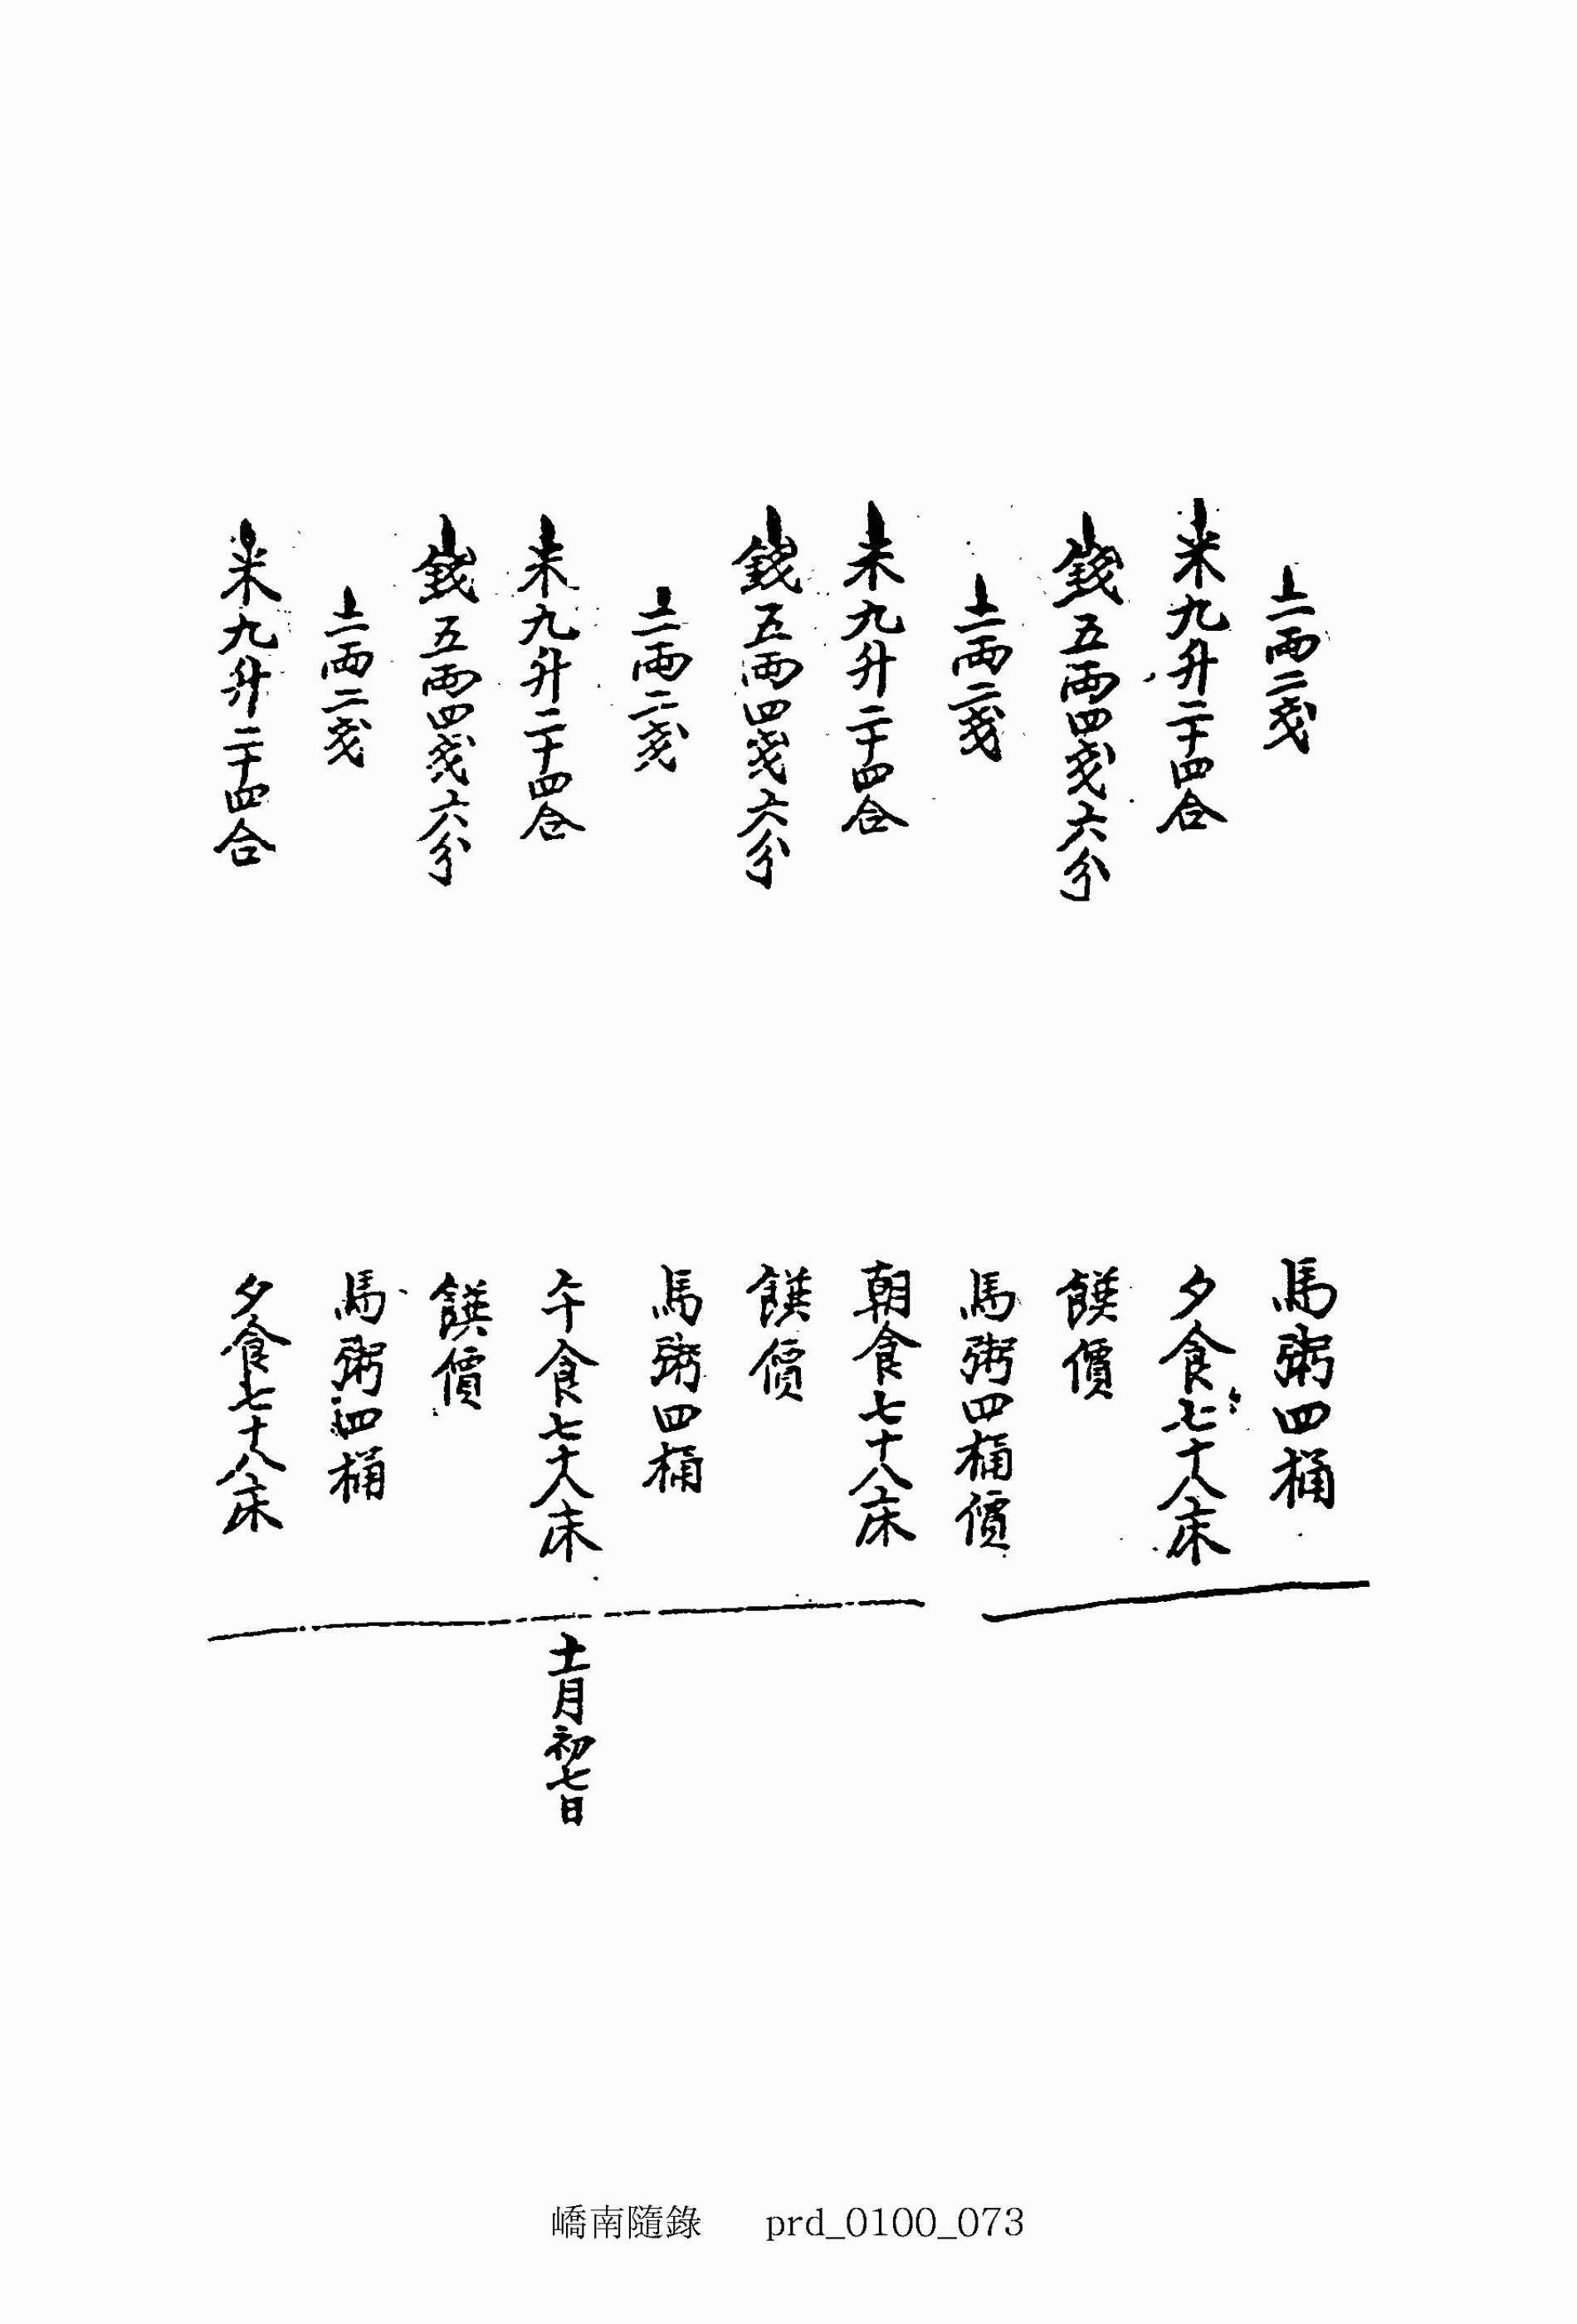 二兩二戔 馬粥四桶
米九升二十四合 夕食七十八床
錢五兩四戔六分 饌價
二兩二戔 馬粥四桶價
米九升二十四合 朝食七十八床
錢五兩四戔六分 饌價
二兩二戔 馬粥四桶
米九升二十四合 午食七十八床 十一月初七日
錢五兩四戔六分 饌價
二兩二戔 馬粥四桶
米九升二十四合 夕食七十八床
嶠南隨錄 prd_0100_073